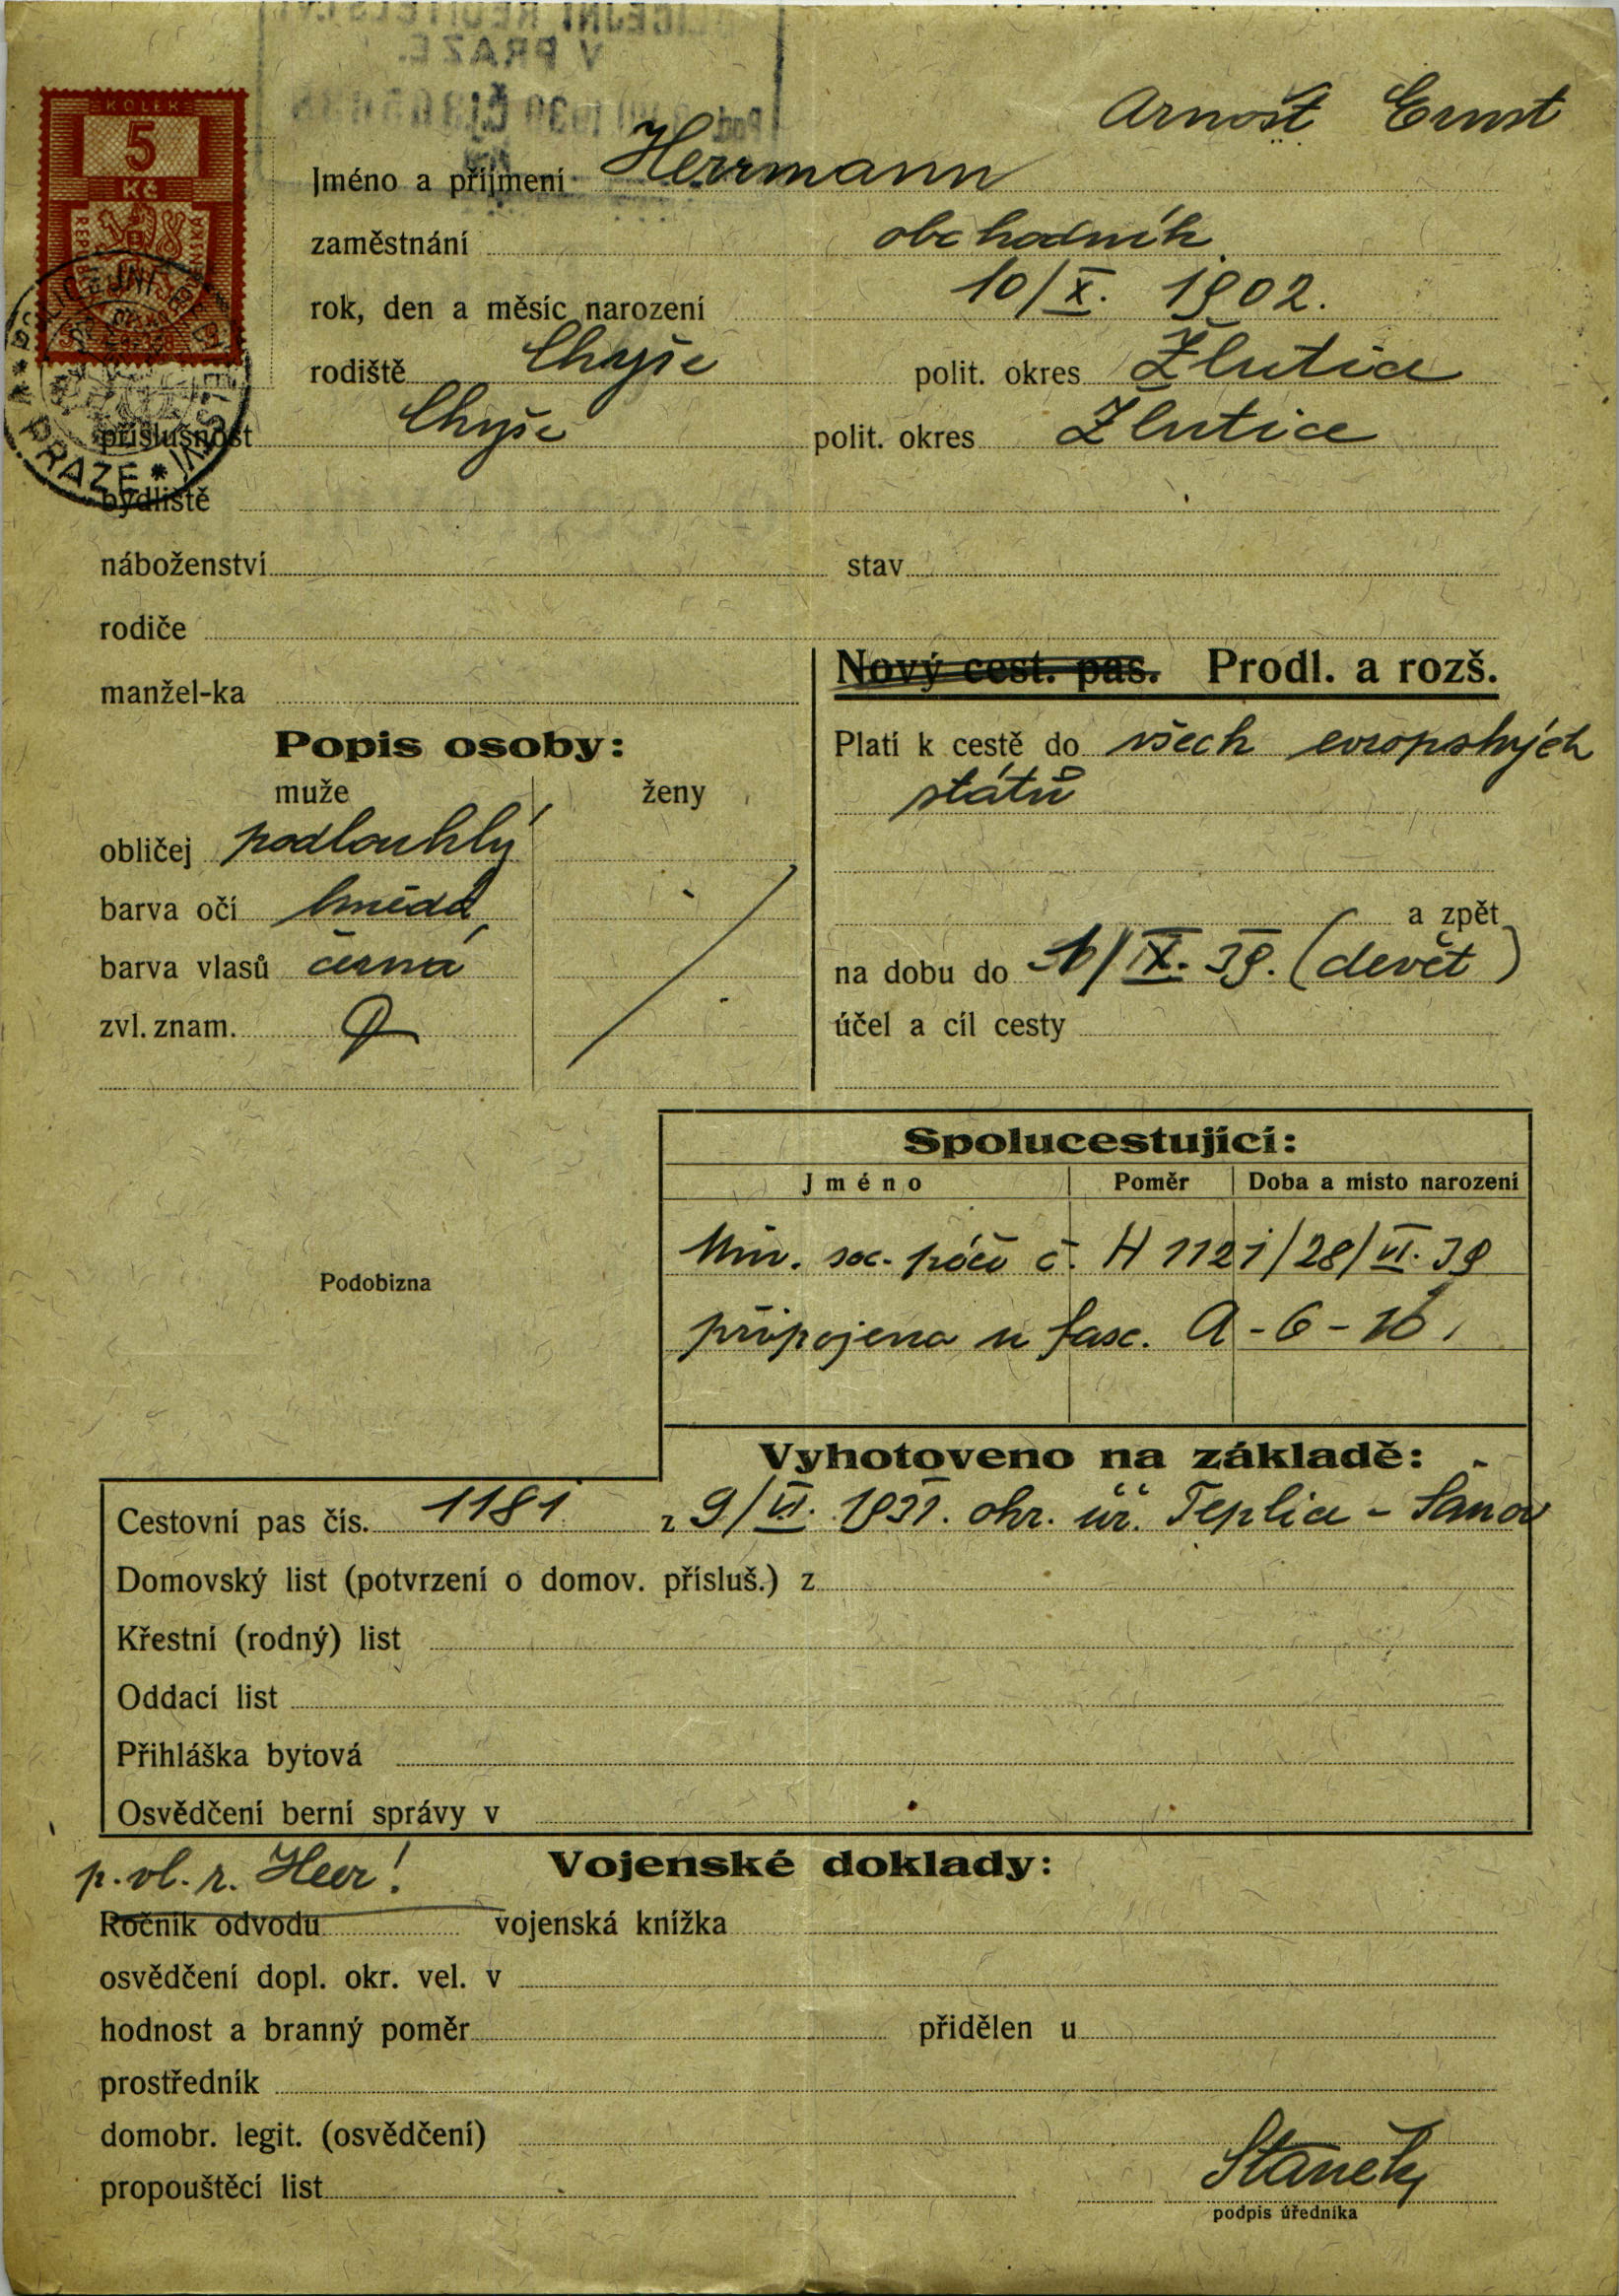 POLICEJNÍ ŘEDITELSTVÍ
V PRAZE.
KOLEK
5
Kč
Arnošt Ernst
Jméno a příjmení Herrmann
zaměstnání obchodník
rok, den a měsíc narození 10/X. 1902.
rodiště Chyše polit. okres Žlutice
příslušnost Chyše polit. okres Žlutice
PRAZE
bydliště
náboženství stav
rodiče
manžel-ka
Nový cest. pas. Prodl. a rozš.
Popis osoby:
muže ženy
obličej podlouhlý
barva očí hnědá
barva vlasů černá
zvl. znam.
Platí k cestě do všech evropských
států
a zpět
na dobu do /IX. 39. (devět)
účel a cíl cesty
Podobizna
Spolucestující:
Jméno Poměr Doba a místo narození
Min. soc. péče č. H 1121/28/VI. 39
připojena u fasc. A-6-16.
Vyhotoveno na základě:
Cestovní pas čís. 1181 z 9/VI. 1931. okr. úř. Teplice - Šanov
Domovský list (potvrzení o domov. přísluš.) z
Křestní (rodný) list
Oddací list
Přihláška bytová
Osvědčení berní správy v
p. vl. r. Heer!
Vojenské doklady:
Ročník odvodu vojenská knížka
osvědčení dopl. okr. vel. v
hodnost a branný poměr přidělen u
prostředník
domobr. legit. (osvědčení)
propouštěcí list
Staněk
podpis úředníka